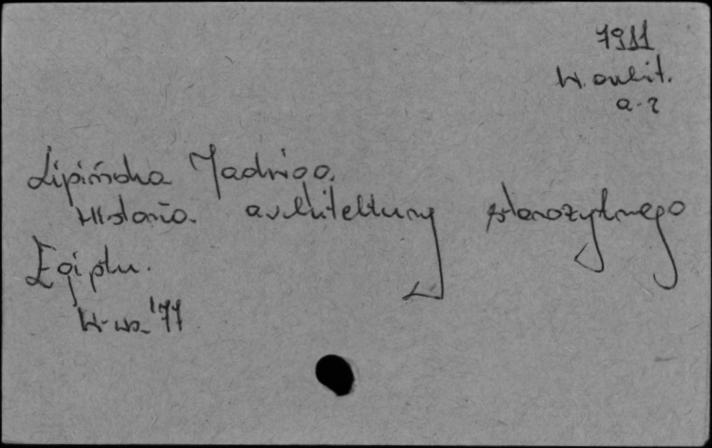 7911
W. archit.
a-z
Lipińska Jadwiga.
Historia architektury starożytnego
Egiptu.
W-wa '77